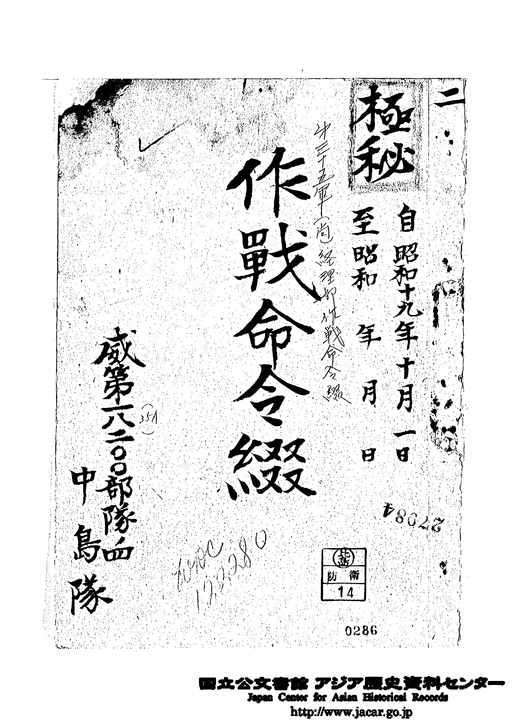 二
極秘
自昭和十九年十月一日
至昭和 年 月 日
(尚)経理部作戦命令綴
作戰命令綴
威第一八二〇〇部隊四
(351)
中島隊
27084
防衛
14
0286
国立公文書館 アジア歴史資料センター
Japan Center for Asian Historical Records
http://www.jacar.go.jp